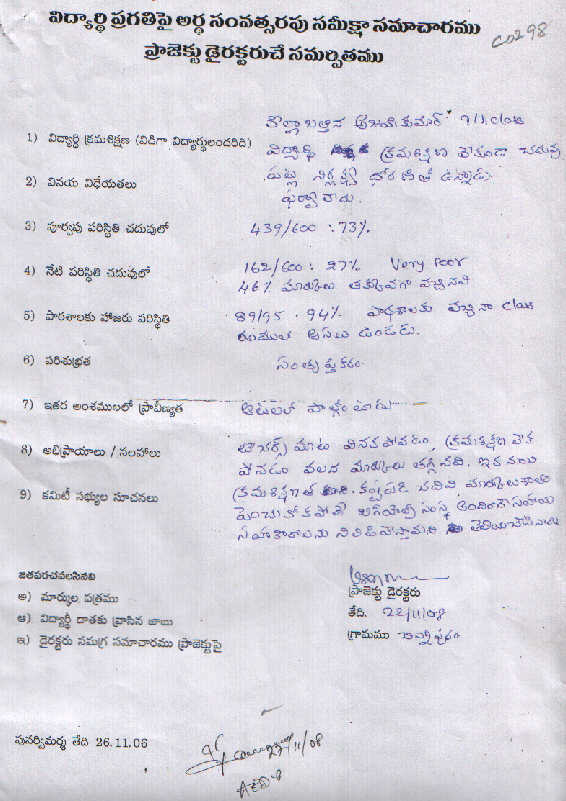 విద్యార్థి ప్రగతిపై అర్థ సంవత్సరపు సమీక్షా సమాచారము
ప్రాజెక్టు డైరక్టరుచే సమర్పితము
CO298
అజయ్ కుమార్ 9th class
1) విద్యార్థి క్రమశిక్షణ (విడిగా విద్యార్థులందరిది)
విద్యార్థి క్రమశిక్షణ లేకుండా చదువు
పట్ల నిర్లక్ష్య ధోరణితో ఉన్నాడు
2) వినయ విధేయతలు
ఫర్వాలేదు.
3) పూర్వపు పరిస్థితి చదువులో 439/600 : 73%
4) నేటి పరిస్థితి చదువులో 162/600 : 27% Very Poor
46% మార్కులు తక్కువగా వచ్చినవి
5) పాఠశాలకు హాజరు పరిస్థితి 89/95 . 94% పాఠశాలకు వచ్చినా class
రూములో అసలు ఉండడు.
6) పరిశుభ్రత సంతృప్తికరం
7) ఇతర అంశములలో ప్రావీణ్యత ఆటలలో పాల్గొంటాడు
8) అభిప్రాయాలు / సలహాలు టీచర్స్ మాట వినకపోవడం, క్రమశిక్షణ లేక
పోవడం వలన మార్కులు తగ్గినవి. ఇకనయినా
9) కమిటీ సభ్యుల సూచనలు క్రమశిక్షణతో కష్టపడి చదివి మార్కుల శాతం
పెంచుకోకపోతే సంస్థ అందించే సహాయ
సహకారాలను నిలిపివేస్తామని తెలియజేసినారు
జతపరచవలసినవి
ప్రాజెక్టు డైరక్టరు
అ) మార్కుల పత్రము
తేది. 22/11/08
ఆ) విద్యార్థి దాతకు వ్రాసిన జాబు
గ్రామము
ఇ) డైరక్టరు సమగ్ర సమాచారము ప్రాజెక్టుపై
పునర్విమర్శ తేది 26.11.08
27/11/08